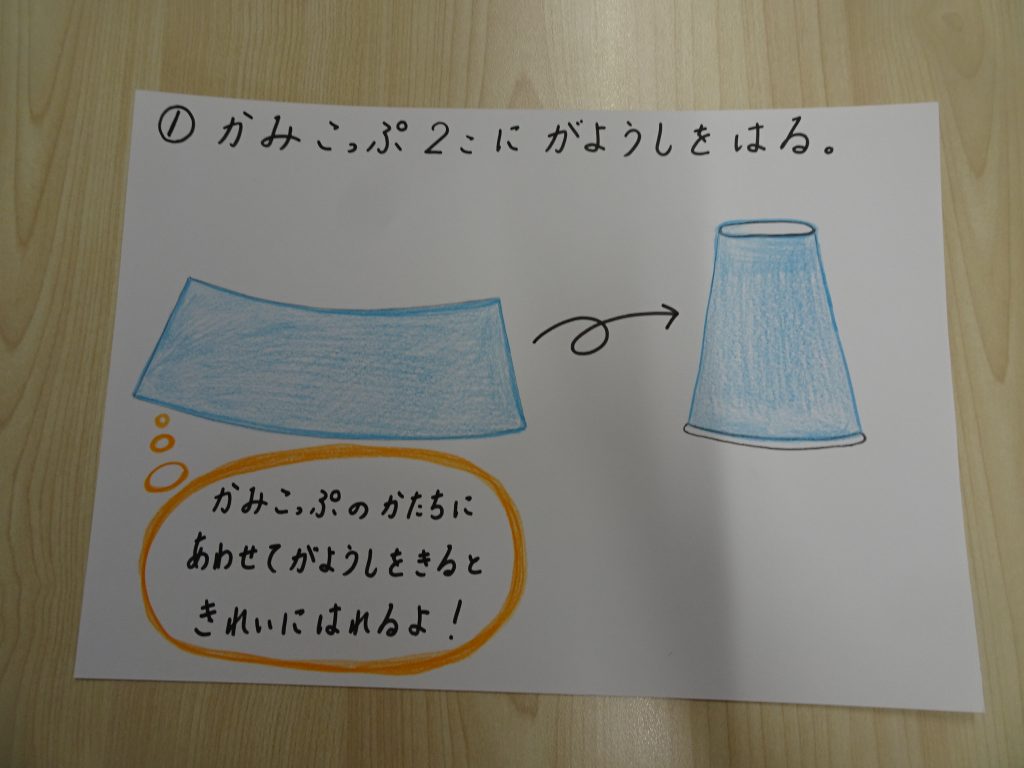 ① かみこっぷ2こに がようしを はる。
かみこっぷのかたちに
あわせてがようしをきると
きれいにはれるよ!